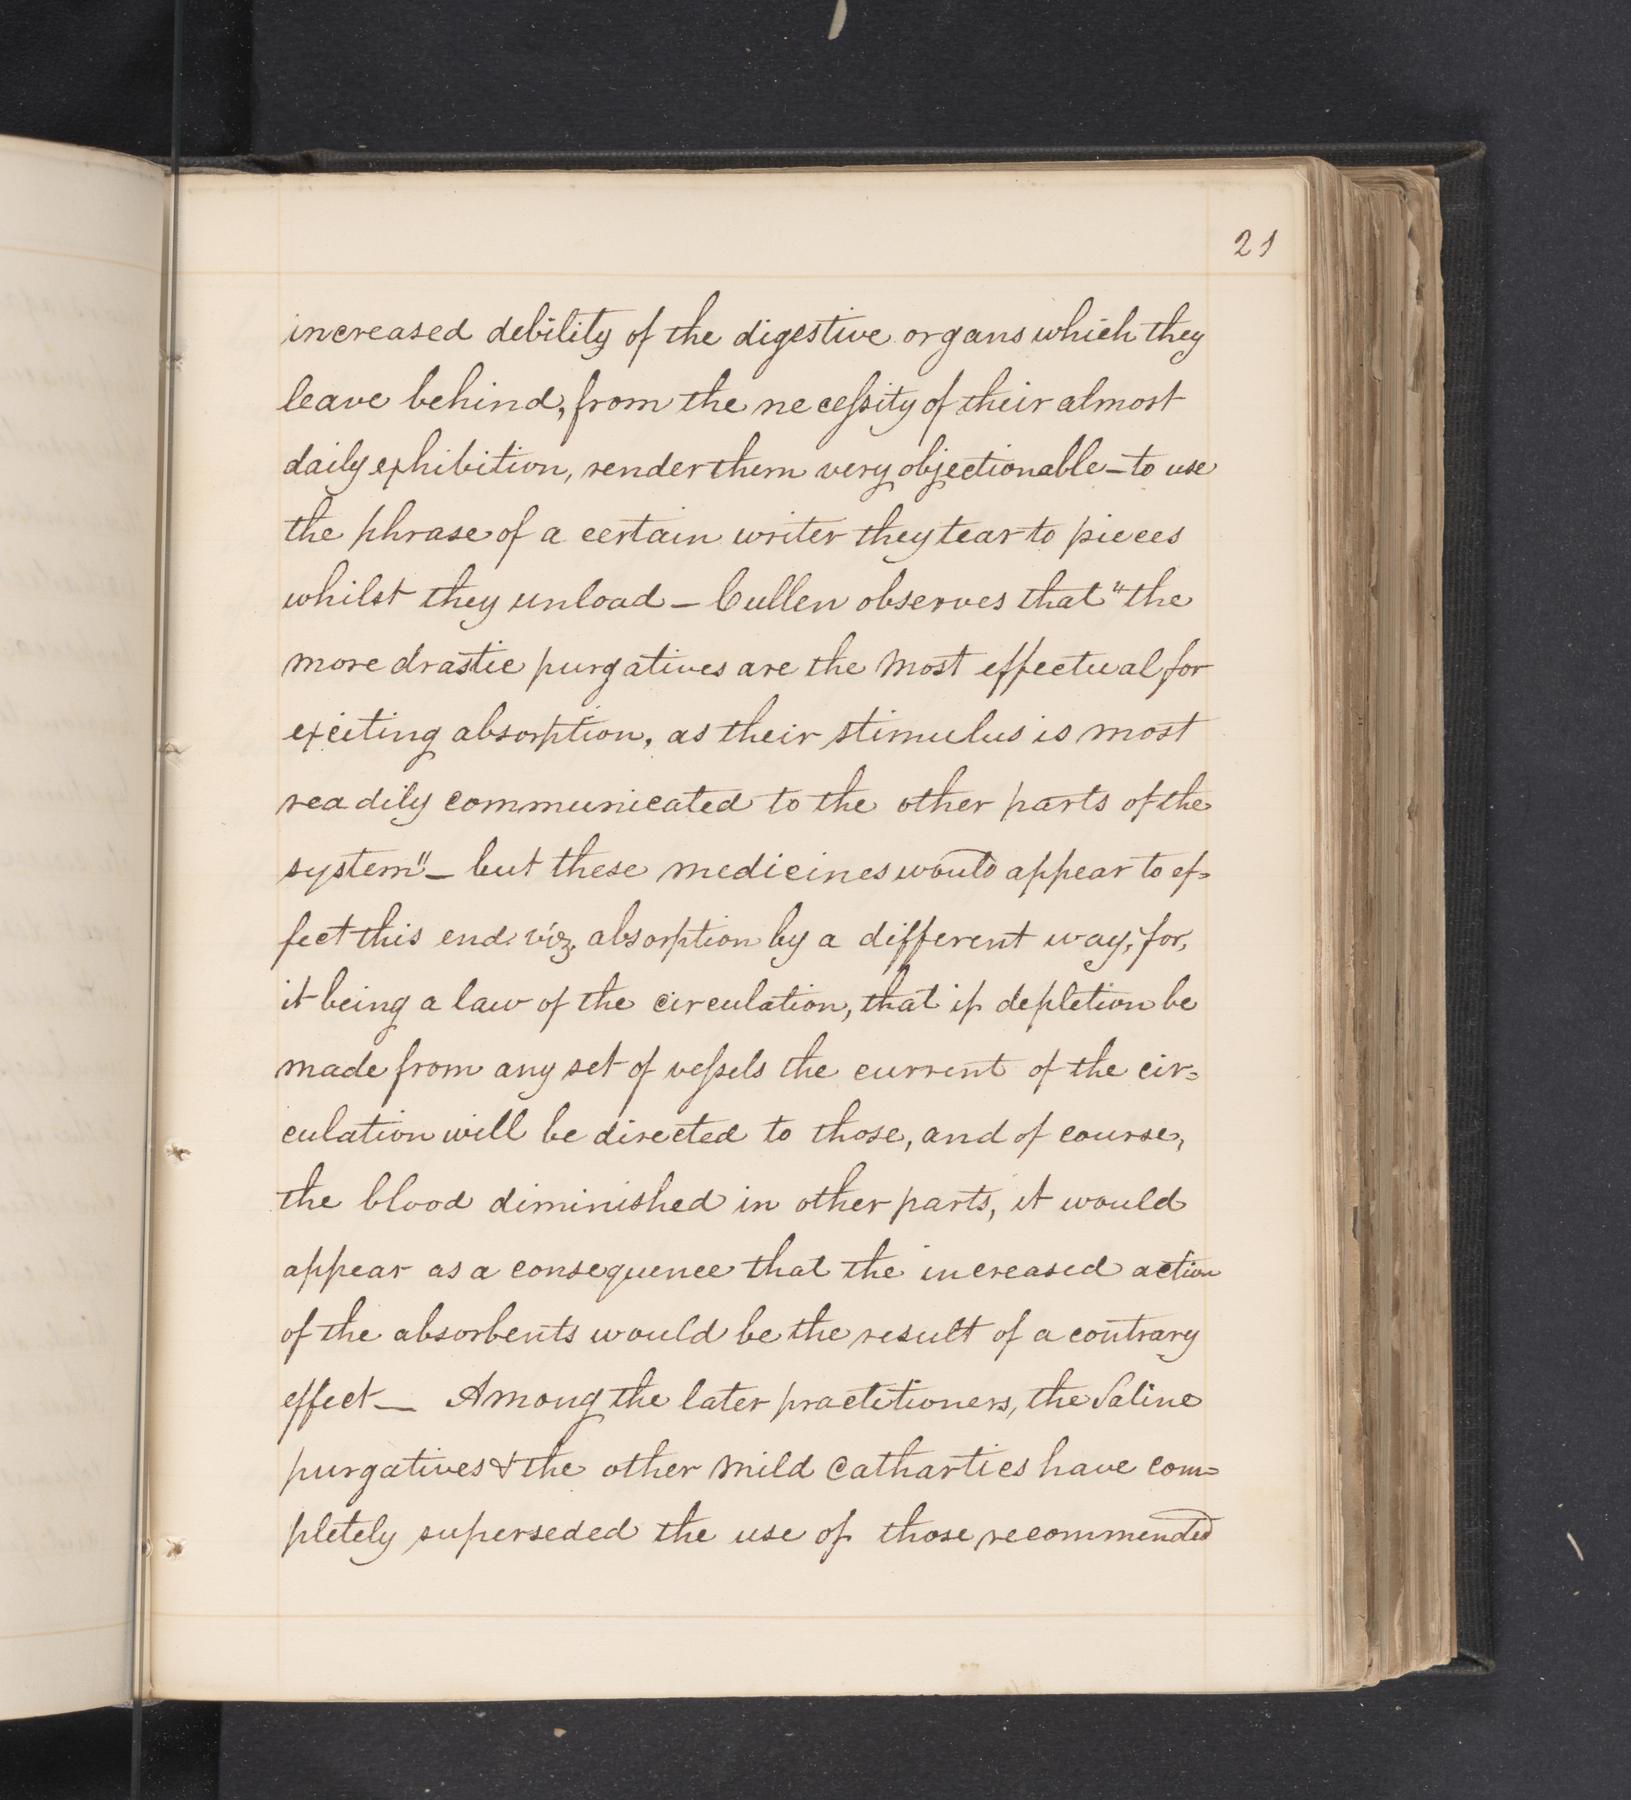 21
increased debility of the digestive organs which they
leave behind, from the neceſsity of their almost
daily exhibition, render them very objectionable – to use
the phrase of a certain writer they tear to pieces
whilst they unload – Cullen observes that "the
more drastic purgatives are the most effectual for
exciting absorption, as their stimulus is most
readily communicated to the other parts of the
system" – but these medicines would appear to ef=
fect this end viz, absorption by a different way, for,
it being a law of the circulation, that if depletion be
made from any set of veſsels the current of the cir=
culation will be directed to those, and of course,
the blood diminished in other parts, it would
appear as a consequence that the increased action
of the absorbents would be the result of a contrary
effect – Among the later practitioners, the Saline
purgatives & the other mild Cathartics have com=
pletely superseded the use of those recommended